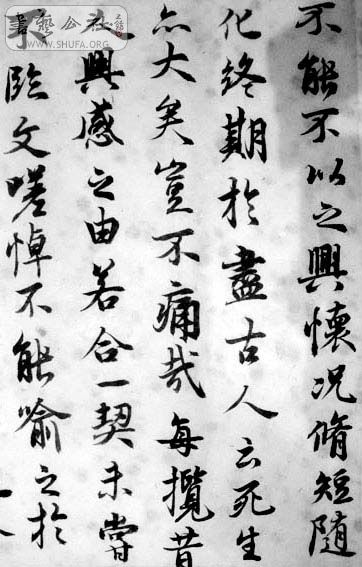 書藝公社
WWW.SHUFA.ORG
不能不以之興懷况脩短隨
化終期於盡古人云死生
亦大矣豈不痛哉每攬昔
人興感之由若合一契未嘗
臨文嗟悼不能喻之於